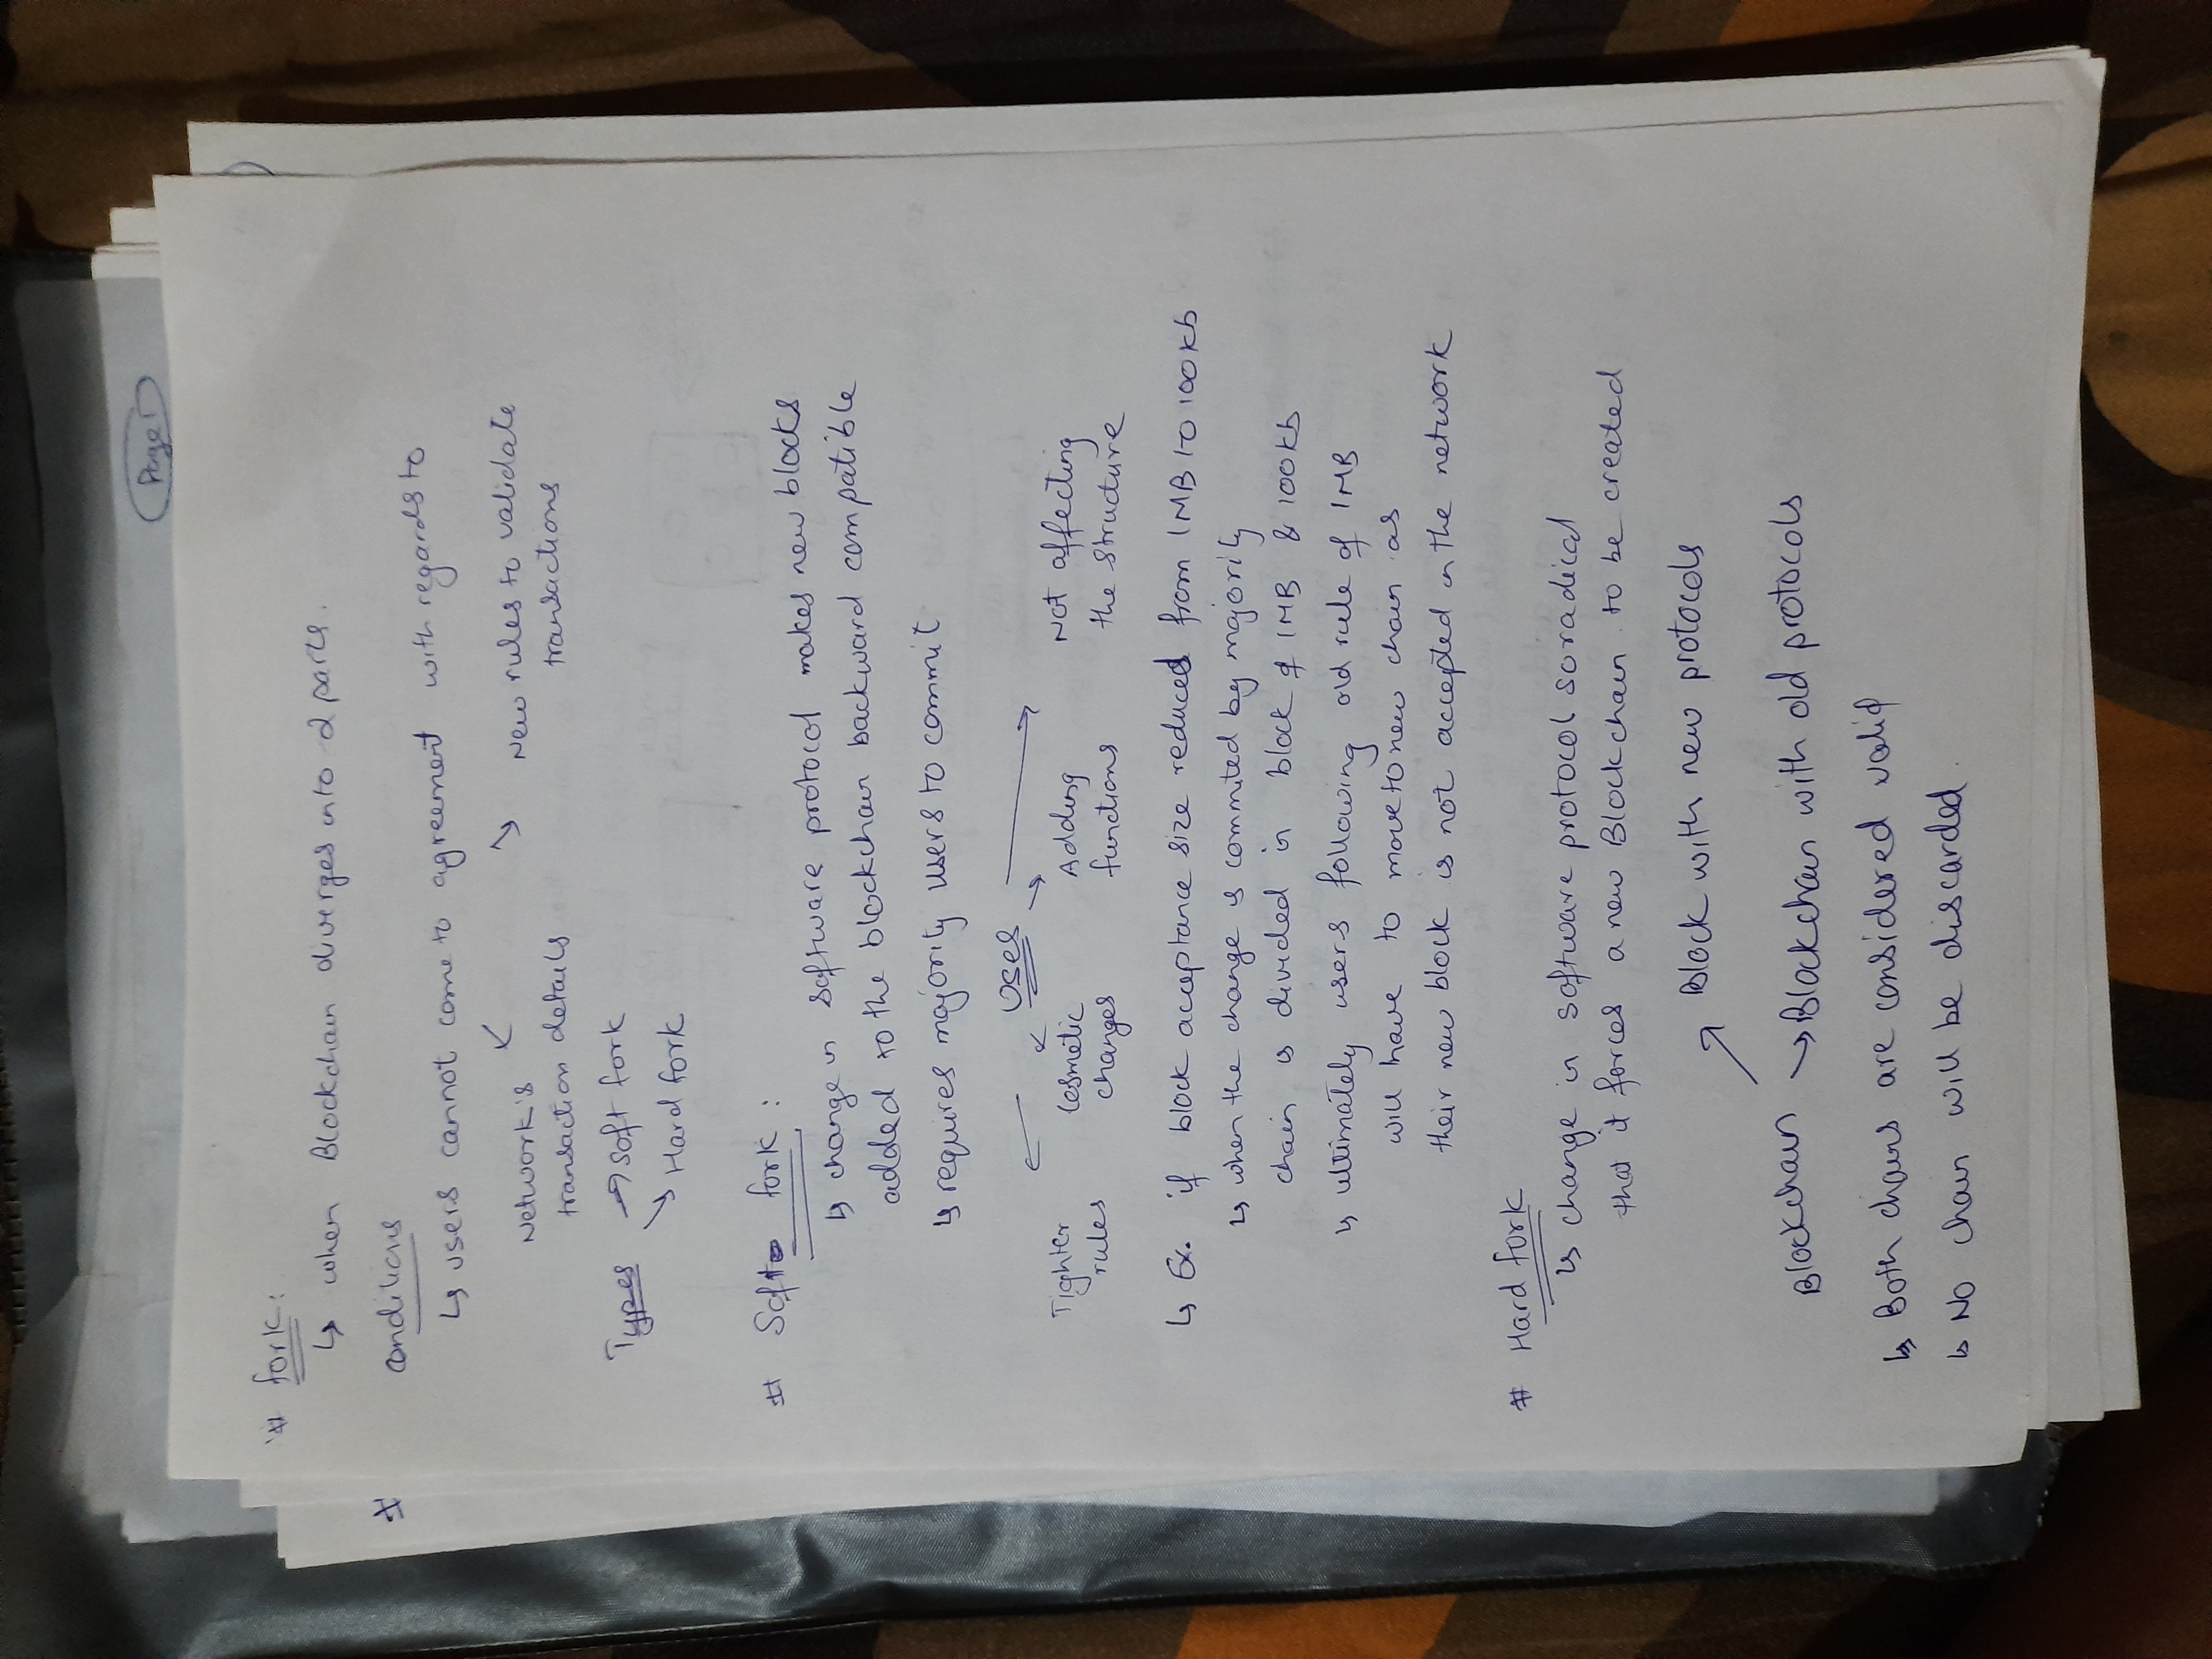 Page 1
# fork:
↳ when Blockchain diverges into 2 parts.
conditions
↳ users cannot come to agreement with regards to
↙ ↘
Network's New rules to validate
transaction details transactions
Types → Soft fork
↘ Hard fork
# Soft fork :
↳ change in software protocol makes new blocks
added to the blockchain backward compatible
↳ requires majority users to commit
← ↙ Uses ↘ →
Tighter Cosmetic Adding Not affecting
rules changes functions the structure
↳ Ex. if block acceptance size reduced from 1MB to 100kb
↳ when the change is commited by majority
chain is divided in block of 1MB & 100kb
↳ ultimately users following old rule of 1MB
will have to move to new chain as
their new block is not accepted in the network
# Hard fork
↳ change in software protocol so radical
that it forces a new Blockchain to be created
↗ Block with new protocols
Blockchain ↘ Blockchain with old protocols
↳ Both chains are considered valid
↳ No chain will be discarded.